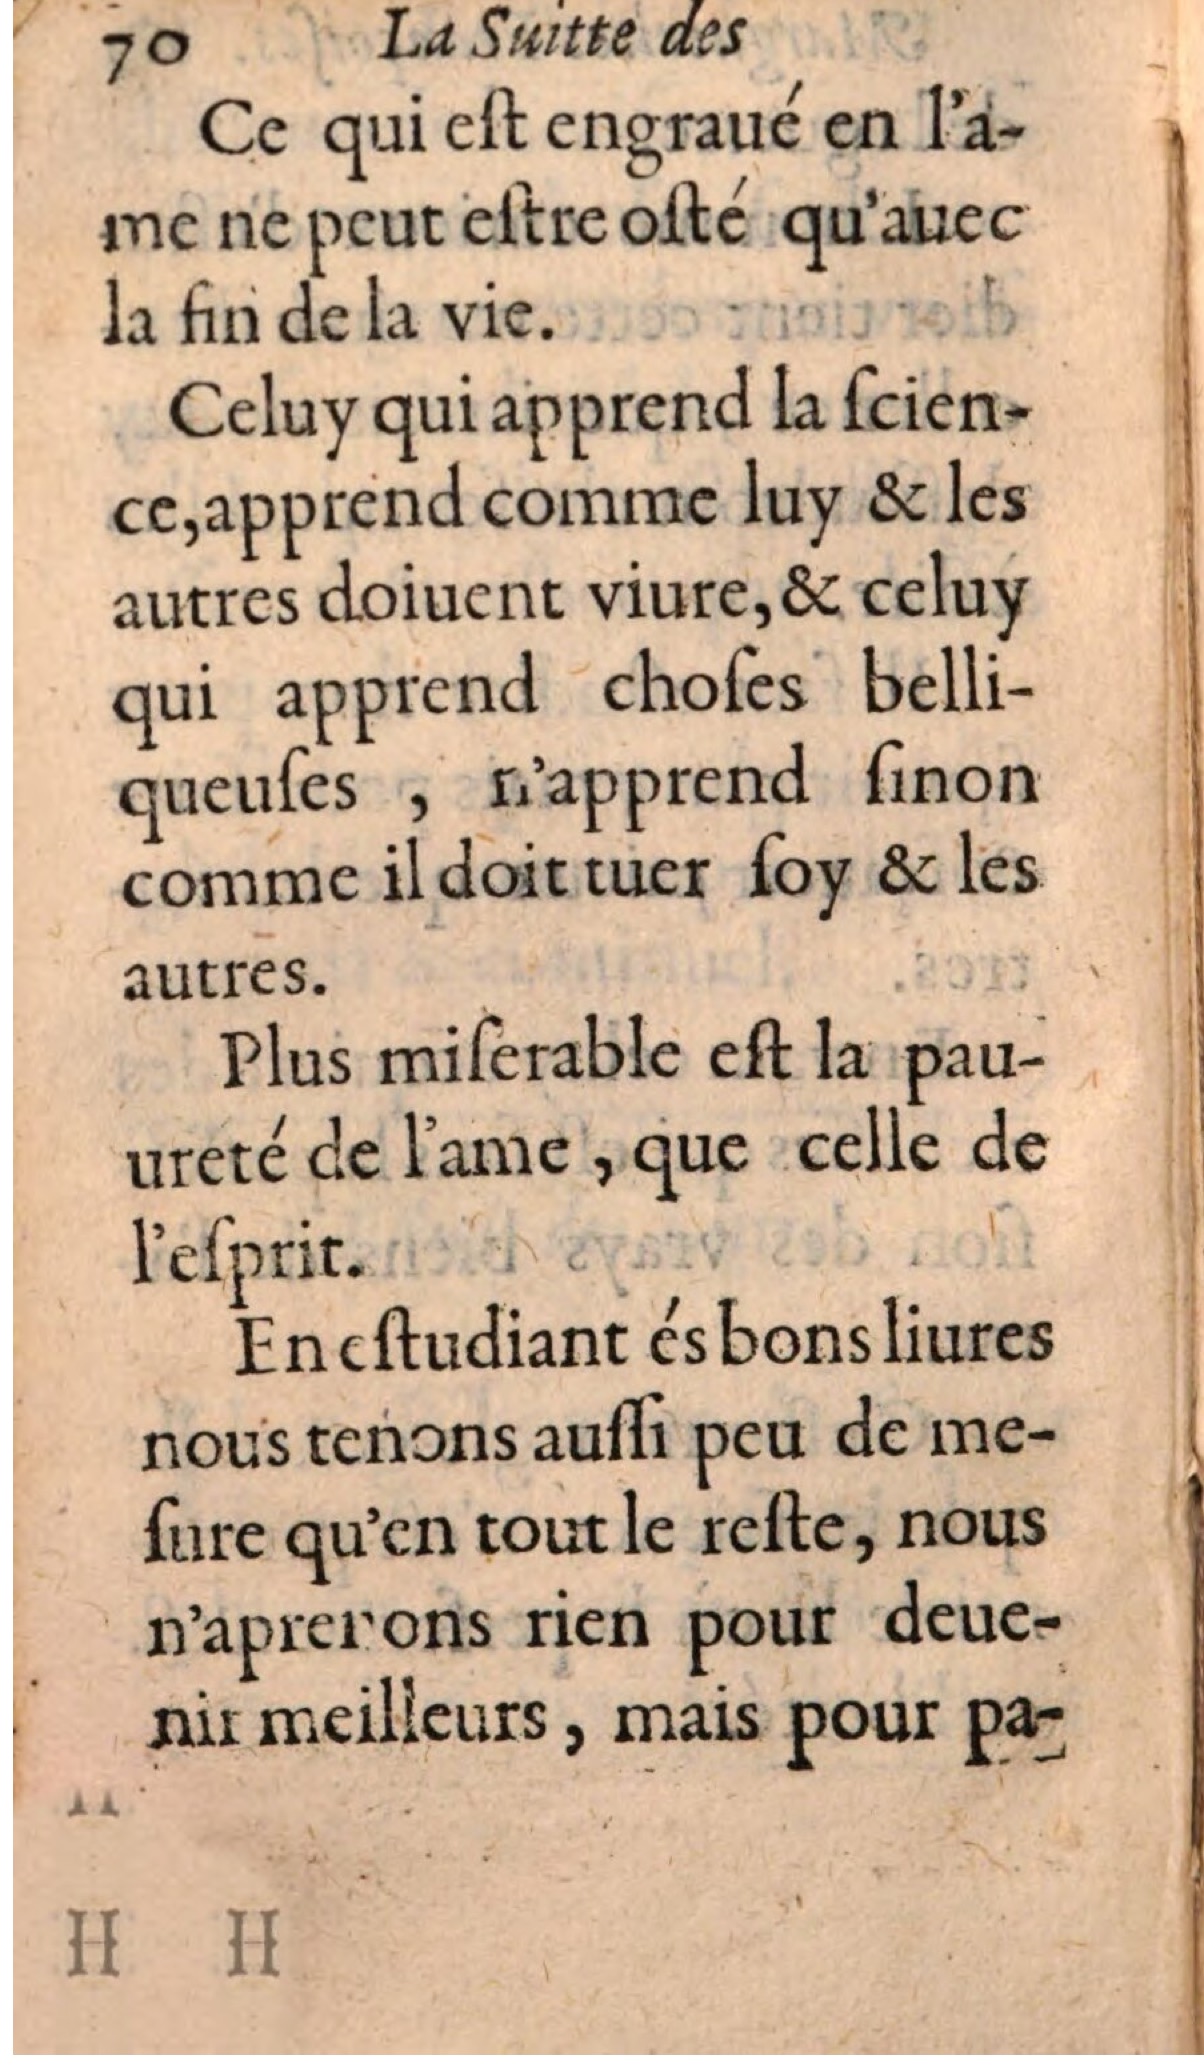 70 La Suitte des
Ce qui eſt engraué en l'a-
me ne peut eſtre oſté qu'auec
la fin de la vie.
Celuy qui apprend la ſcien-
ce, apprend comme luy & les
autres doiuent viure, & celuy
qui apprend choſes belli-
queuſes , n'apprend ſinon
comme il doit tuer ſoy & les
autres.
Plus miſerable eſt la pau-
ureté de l'ame , que celle de
l'eſprit.
En eſtudiant és bons liures
nous tenons auſſi peu de me-
ſure qu'en tout le reſte, nous
n'aprenons rien pour deue-
nir meilleurs , mais pour pa-
H H